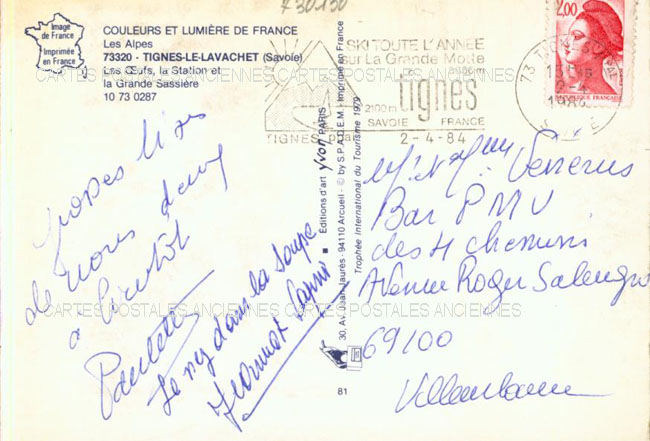 730190
Image
de France
Imprimée
en France
COULEURS ET LUMIÈRE DE FRANCE
Les Alpes
73320 - TIGNES-LE-LAVACHET (Savoie)
Les Œufs, la Station et
la Grande Sassière
10 73 0287
SKI TOUTE L'ANNÉE
sur La Grande Motte
2100m tignes
SAVOIE FRANCE
TIGNES
2-4-84
2,00
RÉPUBLIQUE FRANÇAISE
73
CARTES POSTALES ANCIENNES CARTES POSTALES ANCIENNES
Grosses bises
de nous deux
a bientôt
Paulette
Le nez dans la soupe
Éditions d'art yvon PARIS
30, Av. Jean-Jaurès - 94110 Arcueil - © by S.P.A.D.E.M. - Imprimé en France
Trophée International du Tourisme 1979
81
Bar PMU
des 4 chemins
Avenue Roger Salengro
69100
Villeurbanne
CARTES POSTALES ANCIENNES CARTES POSTALES ANCIENNES